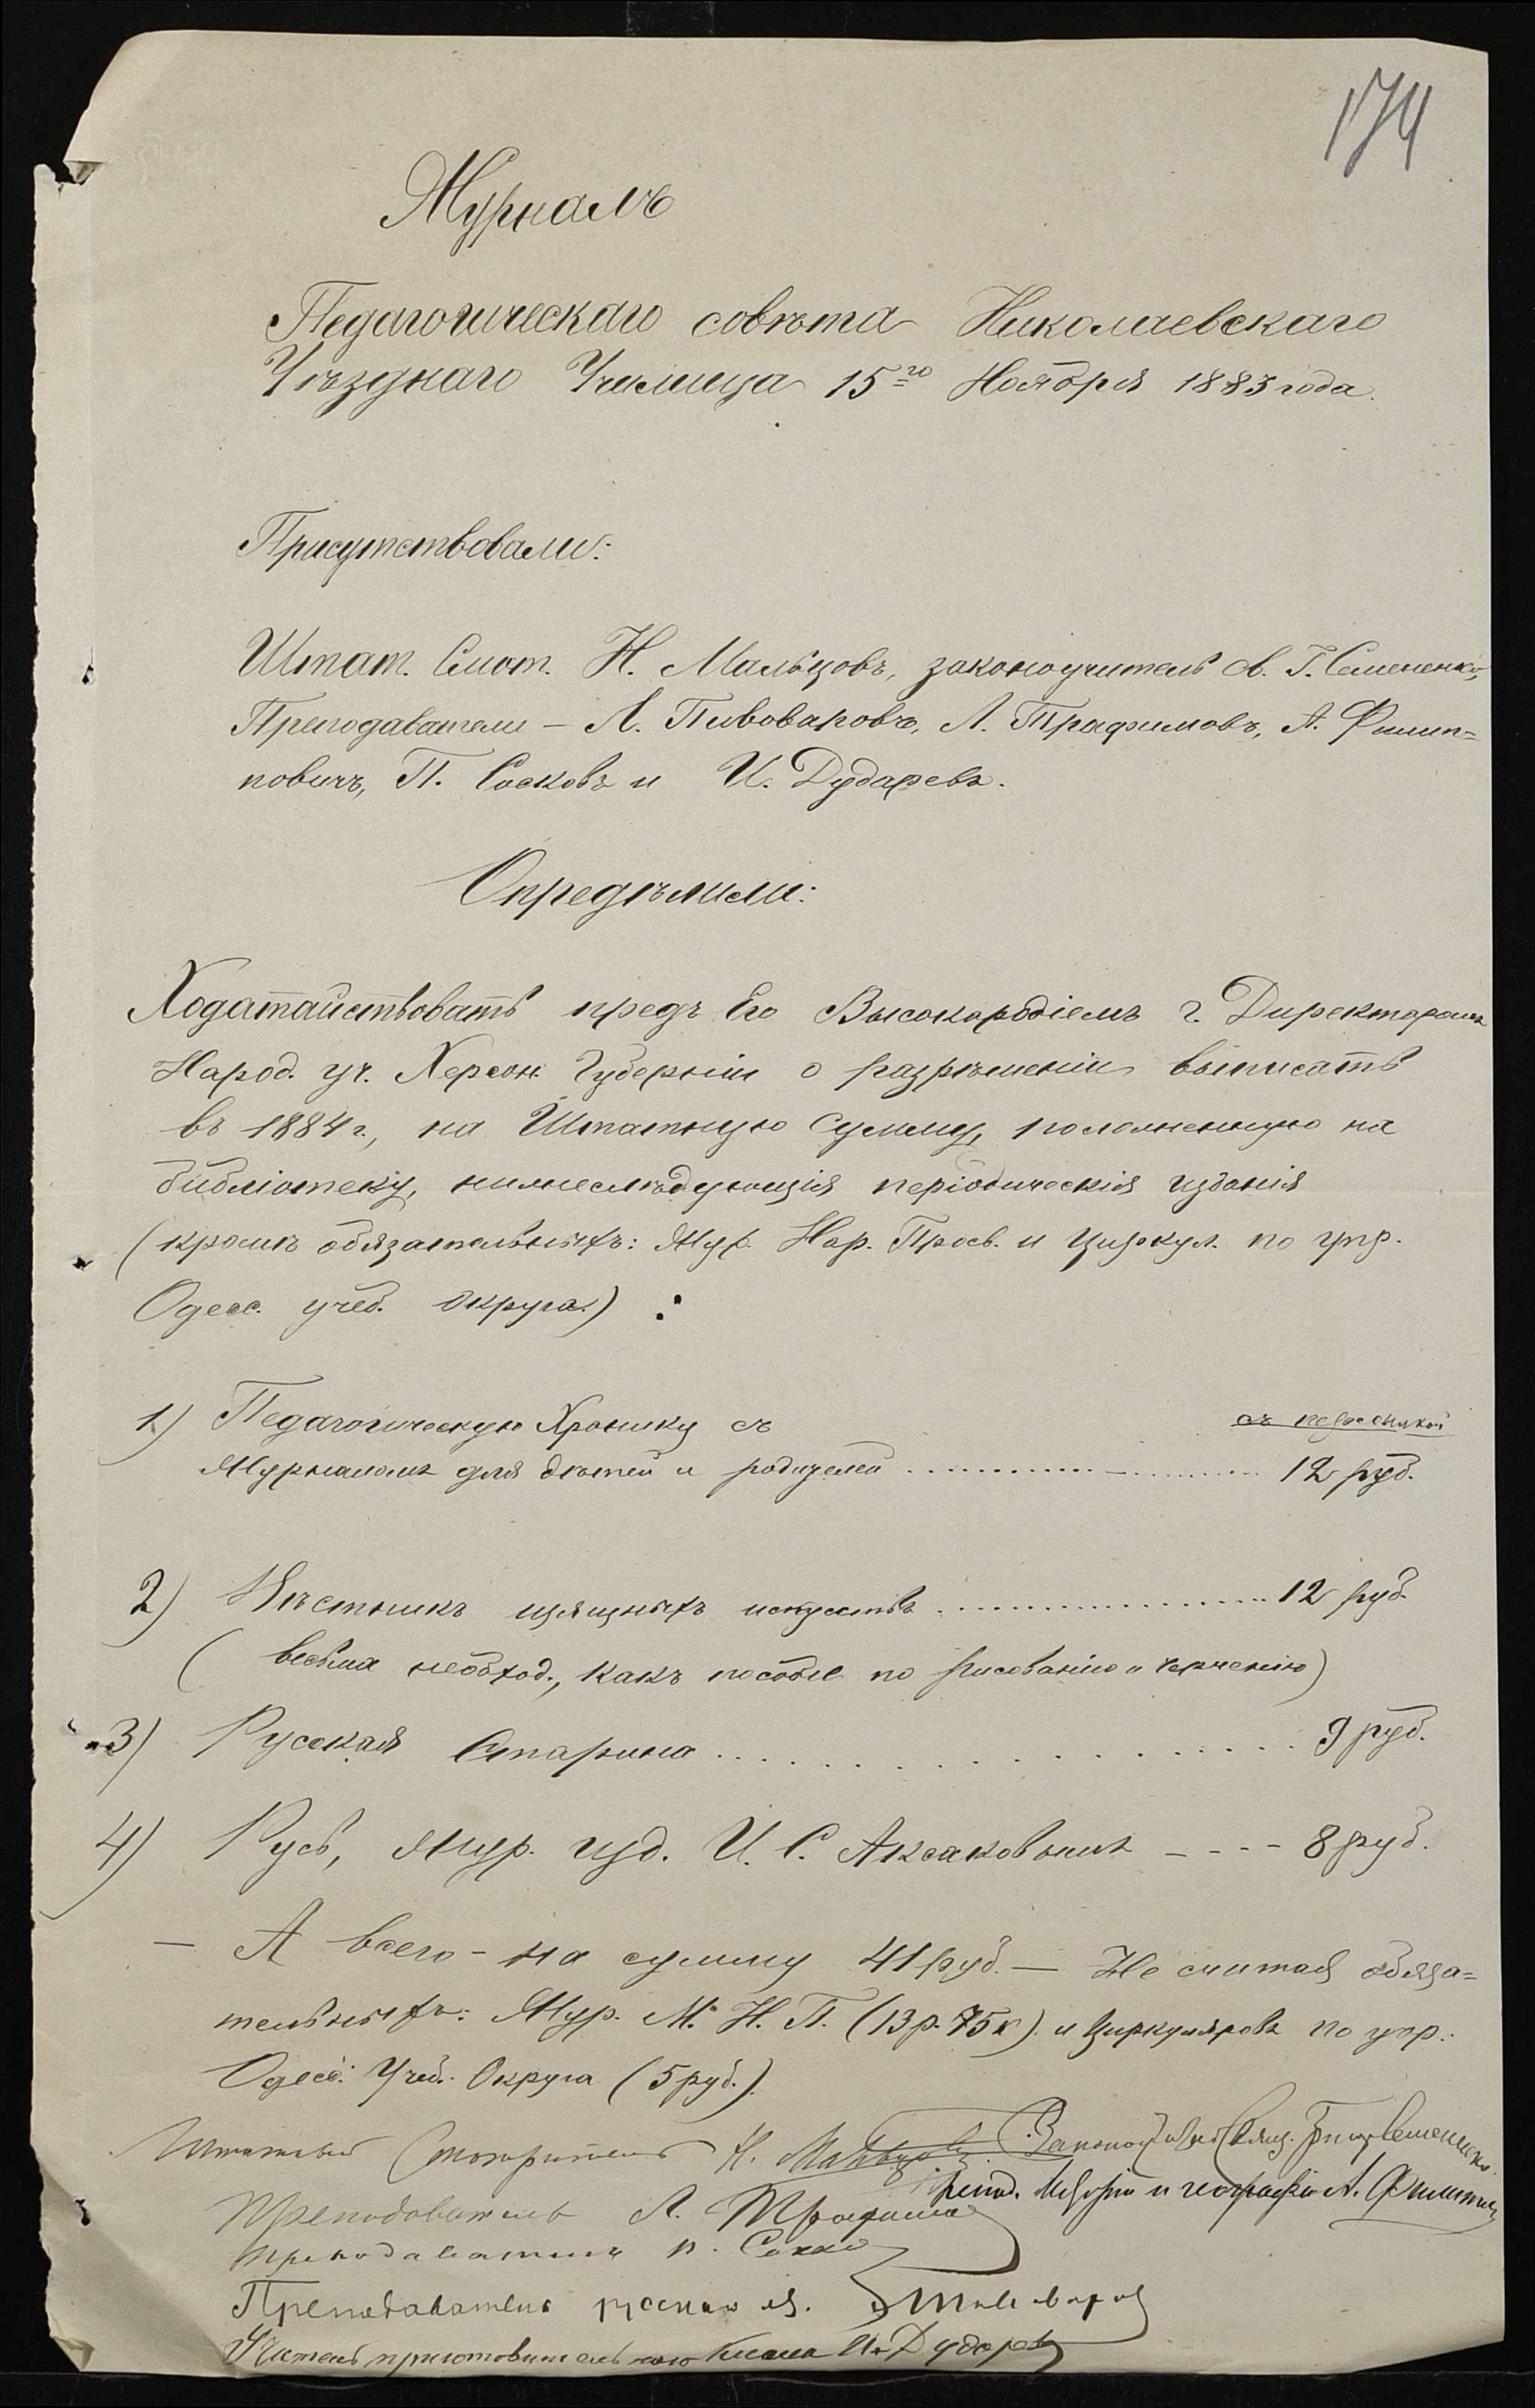 174
Журналъ
Педагогическаго совѣта Николаевскаго
Уѣзднаго Училища 15го Ноября 1883 года.
Присутствовали:
Штат. Смот. Н. Мальцовъ, законоучитель А. Г. Семененко,
Преподаватели – Л. Пивоваровъ, Л. Трафимовъ, А. Филип=
повичъ, П. Сосковъ и И. Дударевъ.
Опредѣлили:
Ходатайствовать предъ Его Высокородіемъ г. Директоромъ
Народ. уч. Херсон. Губерніи о разрѣшеніи выписать
въ 1884 г., на Штатную сумму, положенную на
библіотеку, нижеслѣдующія періодическія изданія
(кромѣ обязательныхъ: Жур. Нар. Просв. и Циркул. по упр.
Одесс. учеб. округа.) :
1) Педагогическую Хронику съ
съ пересылкой
Журналомъ для дѣтей и родителей ........ 12 руб.
2) Вѣстникъ изящныхъ искусствъ ........ 12 руб.
(весьма необход., какъ пособіе по рисованію и черченію)
3) Русская Старина ........ 9 руб.
4) Русь, жур. изд. И. С. Аксаковымъ - - - - 8 руб.
— А всего – на сумму 41 руб. — Не считая обяза=
тельныхъ: Жур. М. Н. П. (13 р. 75 к.) и Циркуляровъ по упр.:
Одесс: Учеб. Округа (5 руб.).
Штатный Смотритель Н. Мальцовъ
Препод. исторіи и географіи А. Филиппович
Преподаватель Л. Трафимов
Преподаватель П. Соско
Преподаватель русскаго яз. Пивоваров
Учитель приготовительнаго класса И. Дударев